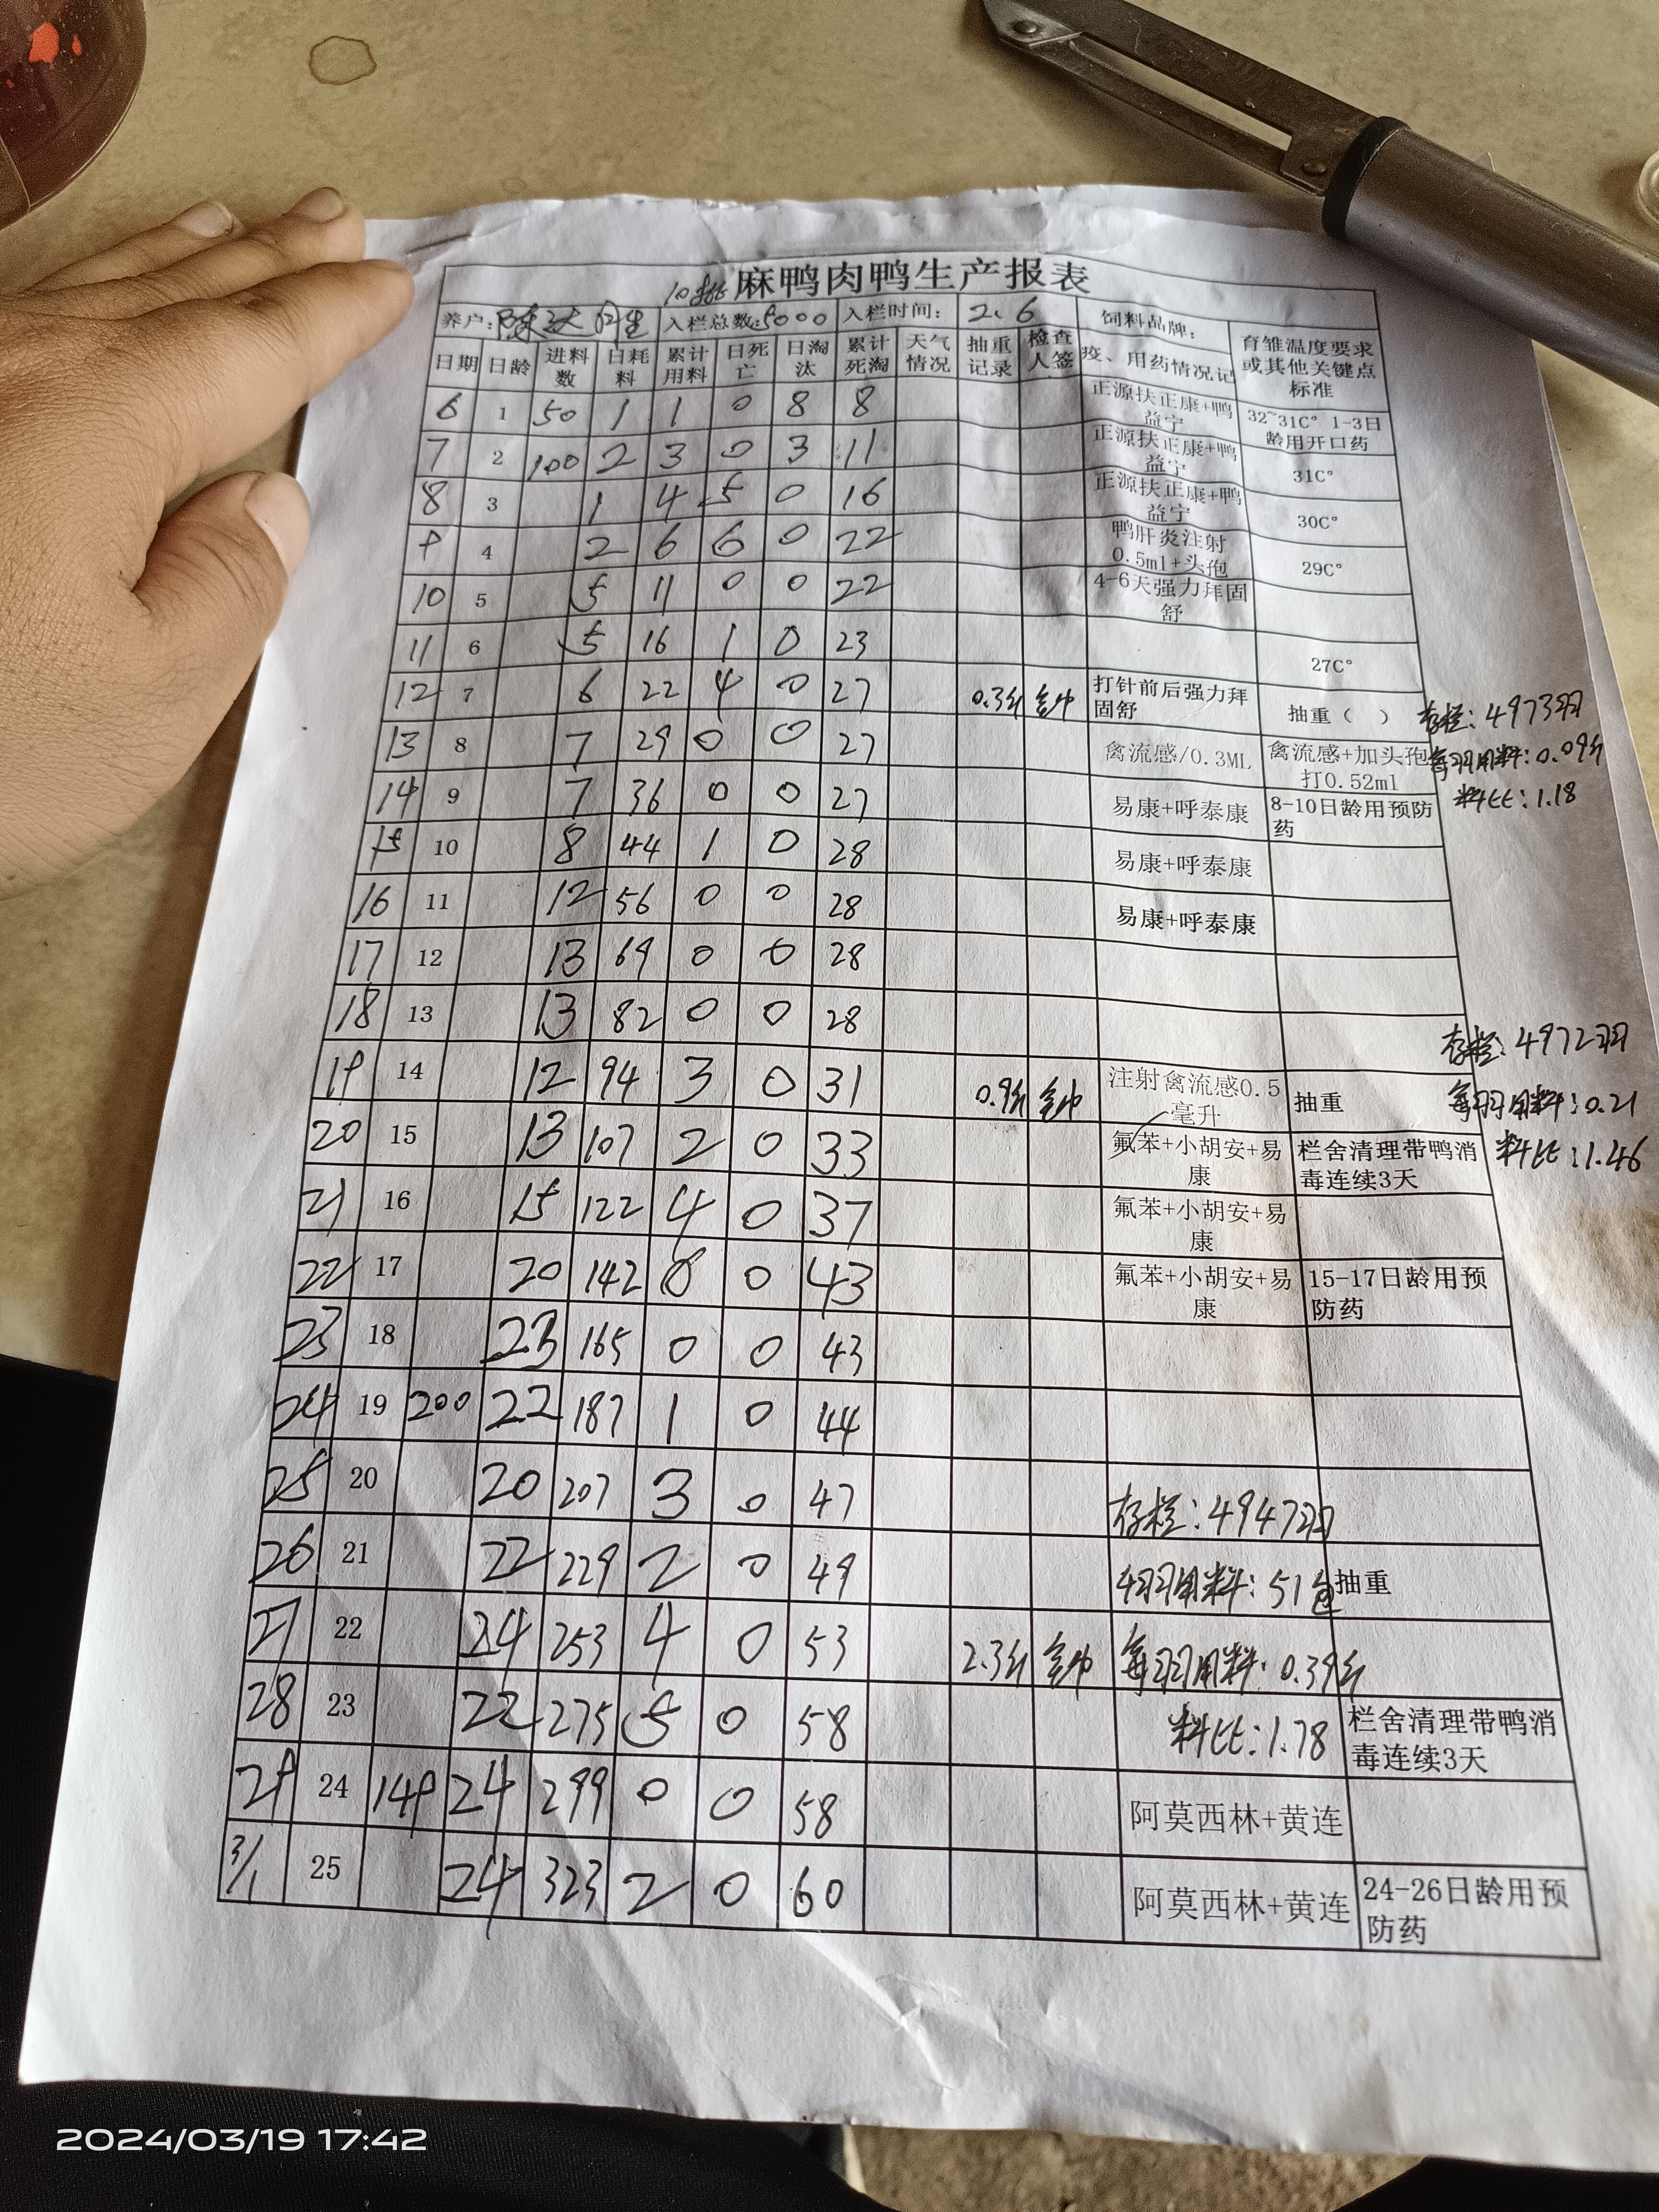 10批 麻鸭肉鸭生产报表
养户: 陈 入栏总数:5000 入栏时间: 2.6 饲料品牌: 育雏温度要求或其他关键点标准
日期 日龄 进料数 日耗料 累计用料 日死亡 日淘汰 累计死淘 天气情况 抽重记录 检查人签 疫、用药情况记
6 1 50 1 1 0 8 8 正源扶正康+鸭益宁 32~31C° 1-3日龄用开口药
7 2 100 2 3 0 3 11 正源扶正康+鸭益宁 31C°
8 3 1 4 5 0 16 正源扶正康+鸭益宁 30C°
9 4 2 6 6 0 22 鸭肝炎注射0.5ml+头孢 29C°
10 5 5 11 0 0 22 4-6天强力拜固舒
11 6 5 16 1 0 23 27C°
12 7 6 22 4 0 27 0.3斤 打针前后强力拜固舒 抽重（ ） 存栏: 4973羽
13 8 7 29 0 0 27 禽流感/0.3ML 禽流感+加头孢打0.52ml 每羽用料: 0.09斤
14 9 7 36 0 0 27 易康+呼泰康 8-10日龄用预防药 料比: 1.18
15 10 8 44 1 0 28 易康+呼泰康
16 11 12 56 0 0 28 易康+呼泰康
17 12 13 69 0 0 28
18 13 13 82 0 0 28 存栏: 4972羽
19 14 12 94 3 0 31 0.9斤 注射禽流感0.5毫升 抽重 每羽用料: 0.21
20 15 13 107 2 0 33 氟苯+小胡安+易康 栏舍清理带鸭消毒连续3天 料比: 1.46
21 16 15 122 4 0 37 氟苯+小胡安+易康
22 17 20 142 0 43 氟苯+小胡安+易康 15-17日龄用预防药
23 18 23 165 0 0 43
24 19 200 22 187 1 0 44
25 20 20 207 3 0 47 存栏: 4947羽
26 21 22 229 2 0 49 用料: 51包 抽重
27 22 24 253 4 0 53 2.3斤 每羽用料: 0.39斤
28 23 22 275 5 0 58 料比: 1.78 栏舍清理带鸭消毒连续3天
29 24 149 24 299 0 0 58 阿莫西林+黄连
3/1 25 24 323 2 0 60 阿莫西林+黄连 24-26日龄用预防药
2024/03/19 17:42